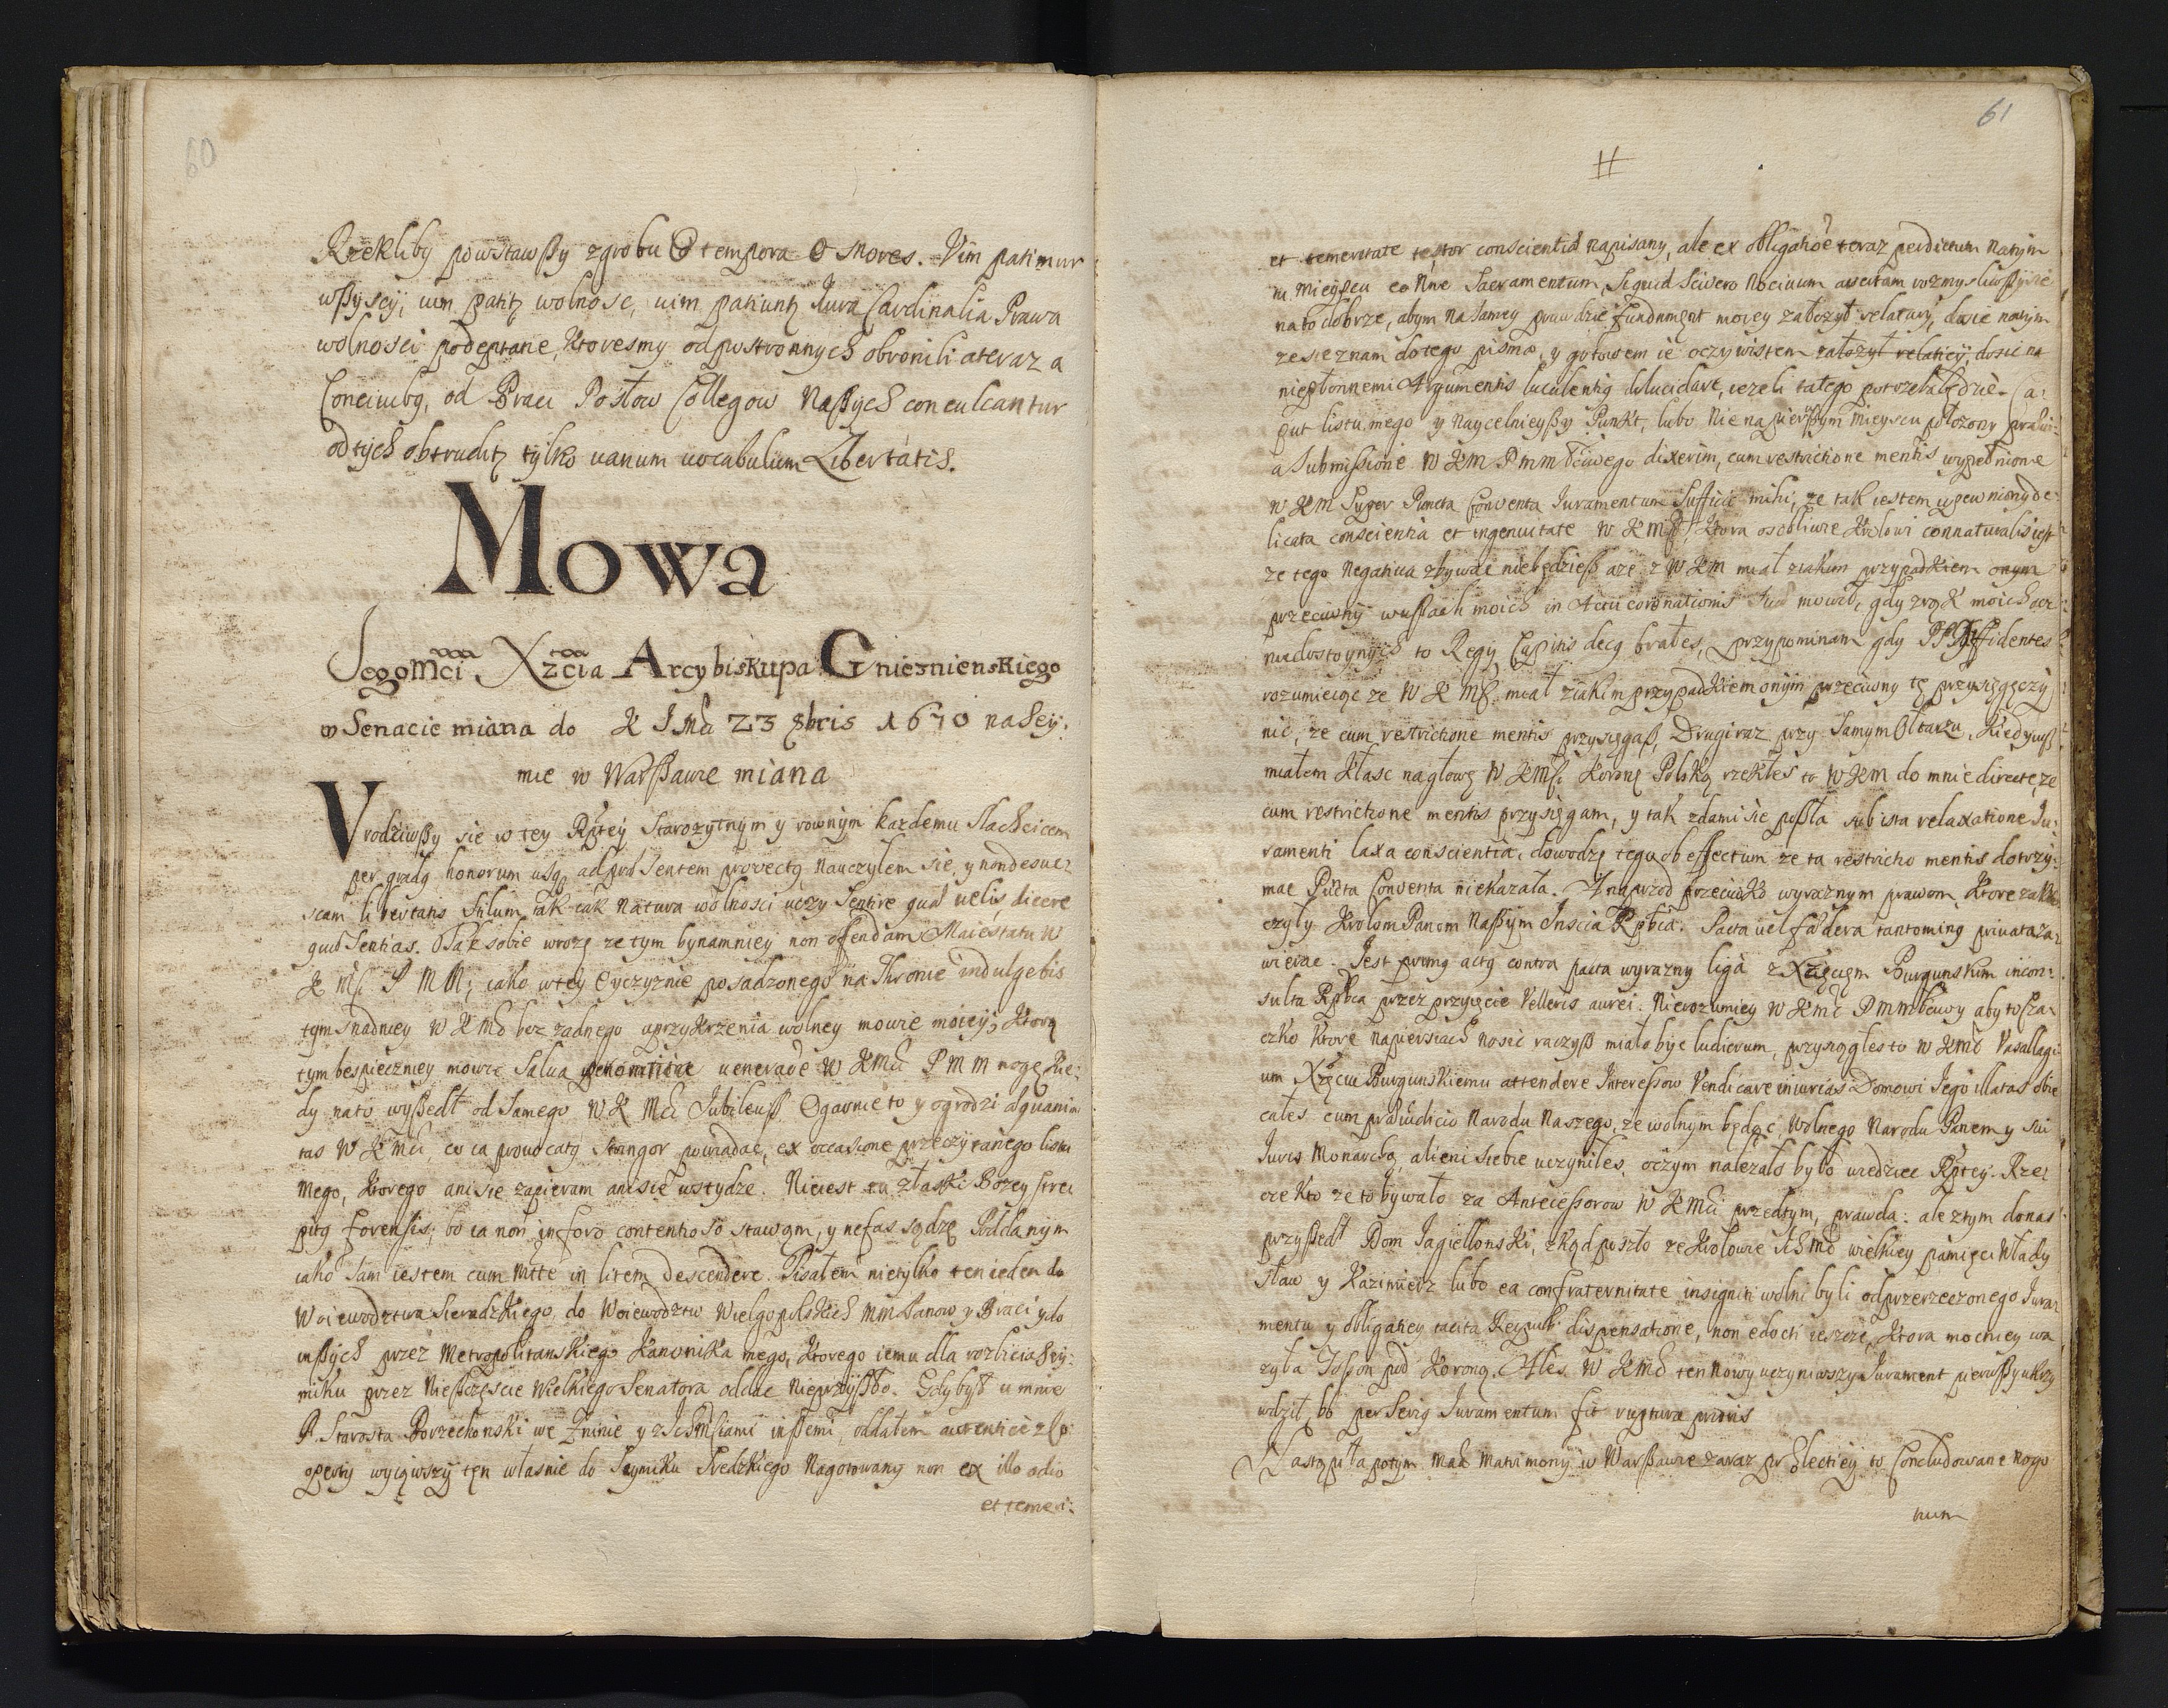 60
Rzekliby powstawszy z grobu O tempora O mores. Vim patimur
wszyscy, uim patit~ wolnosc, uim patiunt~ Jura Cardinalia Prawa
wolnosci podeptane, ktoresmy od postronnych obronili a teraz a
Conciuibg, od Braci Posłow Collegow Naszych conculcantur
od tych obtrudit~ tylko uanum uocabulum Libertatis.
Mowa
Jegomci Xżcia Arcybiskupa Gnieznienskiego
w Senacie miana do K J Mci 23 8bris 1670 na Sey:
mie w Warszawie miana
Vrodziwszy sie w tey Rptey Starozytnym y rownym kazdemu Slachcicem
per gradg honorum usq adpræsentem provectg nauczylem sie, y non desue:
scam libertatis stilum, tak iak natura wolnosci uczy Sentire quæ uelis dicere
quæ Sentias. Tak sobie wrozę ze tym bynamniey non offendam Maiestatu W
K Mci P M M; iako w tey Oyczyznie posadzonego na Thronie indulgebis
tym snadniey W K Mć bez zadnego uprzykrzenia wolney mowie moiey, ktorą
tym bespieczniey mowic Salua ueneratione W K Mci P M M mogę kie:
dy na to wyszedł od Samego W K Mci Jubileusz Ogarnie to y ogrodzi æquani
tas W K Mci, co ia prouocatg Stringor powiadac, ex occasione przeczytanego listu
mego, ktorego ani sie zapieram ani sie wstydze. Nie iest tu z łaski Bozey stre
pitg forensis; bo ia non in foro contentioso stawam, y nefas sądzę Poddanym
iako sam iestem cum Mtte in litem descendere. Pisałem nietylko ten ieden do
Woiewodztwa Sieradzkiego, do Woiewodztw Wielgopolskich MM Panow y Braci y do
inszych przez Metropolitanskiego Kanonika mego, ktorego iemu dla rozbicia Sey:
miku przez nieszczęscie Wielkiego Senatora oddac nieprzyszło. Gdy był u mnie
P. Starosta Borzechowski we Zninie y z Ichmsciami inszemi, oddałem autentice z Co
operty wyiąwszy ten własnie do Seymiku Sredzkiego Nagotowany non ex illo odio
et temeri:
61
#
et temeritate testor conscientia napisany, ale ex obligatione teraz perdictum na tym
tu mieyscu co nne Sacramentum, Siquid Scivero Nociuum auertam rozmysliwszy sie
na to dobrze, abym na samey prawdzie fundament moiey załozył relatiey, dosc na tym
ze sie znam do tego pisma, y gotowem ie oczywistem załozył relatiey, dosic na
niepłonnemi Argumentis luculentis dilucidare, iezeli tatego potrzeba będzie. Ca:
put listu mego y naycelnieyszy Punkt, lubo Nie na pierszym mieyscu połozony præui:
a Submissione W K M P m m dixerim, cum restrictione mentis wypełnione
W K M Super Pacta Conventa Juramentum Sufficit mihi, ze tak iestem upewniony de
licata conscientia et ingenuitate W K Mci, ktora osobliwie Krolowi connaturalis iest
ze tego Negatiua zbywac niebędziesz aze z W K M miał ziakim przypadkiem onym
przeciwny w uszach moich in Actu coronationis mowił, gdy z rąk moich acz
niedostoynych to Regij Capitis decg brałes, przypominam gdy PP Dissidentes
rozumieiąc ze W K Mć miał ziakim przypadkiem onym przeciwny tę przysięgę czy
nic, ze cum restrictione mentis przysięgasz, Drugi raz przy Samym Ołtarzu, kiedy iusz
miałem kłasc na głowę W K Mci Koronę Polską rzekłes to W K M do mnie directe, ze
cum restrictione mentis przysięgam, y tak zda mi sie poszła sub ista relaxatione Ju:
ramenti laxa conscientia, dowodzę tego ob effectum ze ta restrictio mentis dotrzy:
mac Pacta Conventa niekazała. A naprzod przeciwko wyraznym prawom, ktore zakro
czyły Krolom Panom Naszym Inscia Rpbca. Pacta uel fædera tantoming priuata za:
wierac. Jest primg actg contra pacta wyrazny liga z Xiązęciem Burgunskim incon:
sulta Rpbca przez przyięcie Velleris aurei. Nierozumiey W K Mć P m m aby to Cza:
czko ktore na piersiach nosic raczysz miało byc ludicrum, przysiągłes to W K Mć Vasallagi
um Xżęciu Burgunskiemu attendere Interessow Vendicare iniurias Domowi Jego illatas obie
całes cum præiudicio Narodu Naszego, ze wolnym będąc Wolnego Narodu Panem y sui
Juris Monarchą, alieni siebie uczyniłes, oczym nalezało było wiedziec Rptey. Rze:
cze kto ze to bywało za Antecessorow W K Mci przedtym, prawda: ale z tym do nas
przyszedł Dom Jagiellonski, zkąd poszło ze Krolowie Ich Mć wielkiey pamięci Włady
sław y Kazimierz lubo ea confraternitate insigniti wolni byli od przerzeczonego Jura:
mentu y obligatiey tacita Reipub: dispensatione, non edocti ieszcze, ktora mocniey wa
zyła pod Koroną. Ales W K Mć ten nowy uczyniwszy Jurament pierwszy ukrzy
wdził, bo per Serig Juramentum fit ruptura prioris
Nastąpiła potym Matrimonij w Warszawie zaraz po Electiey to Concludowane Nogo
num